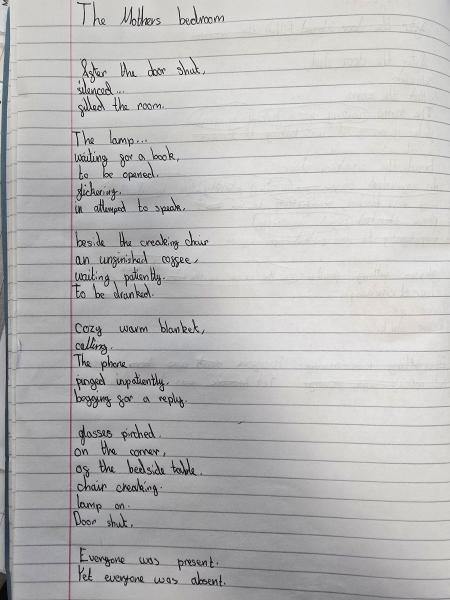 The Mothers bedroom
After the door shut,
silenced...
filled the room.
The lamp...
waiting for a book,
to be opened.
flickering.
in attempted to speak.
beside the creaking chair
an unfinished coffee,
waiting patiently.
to be dranked.
cozy warm blanket,
calling.
The phone
pinged inpatiently.
begging for a reply.
glasses pirched.
on the corner,
of the bedside table.
chair creaking.
lamp on.
Door shut.
Everyone was present.
Yet everyone was absent.